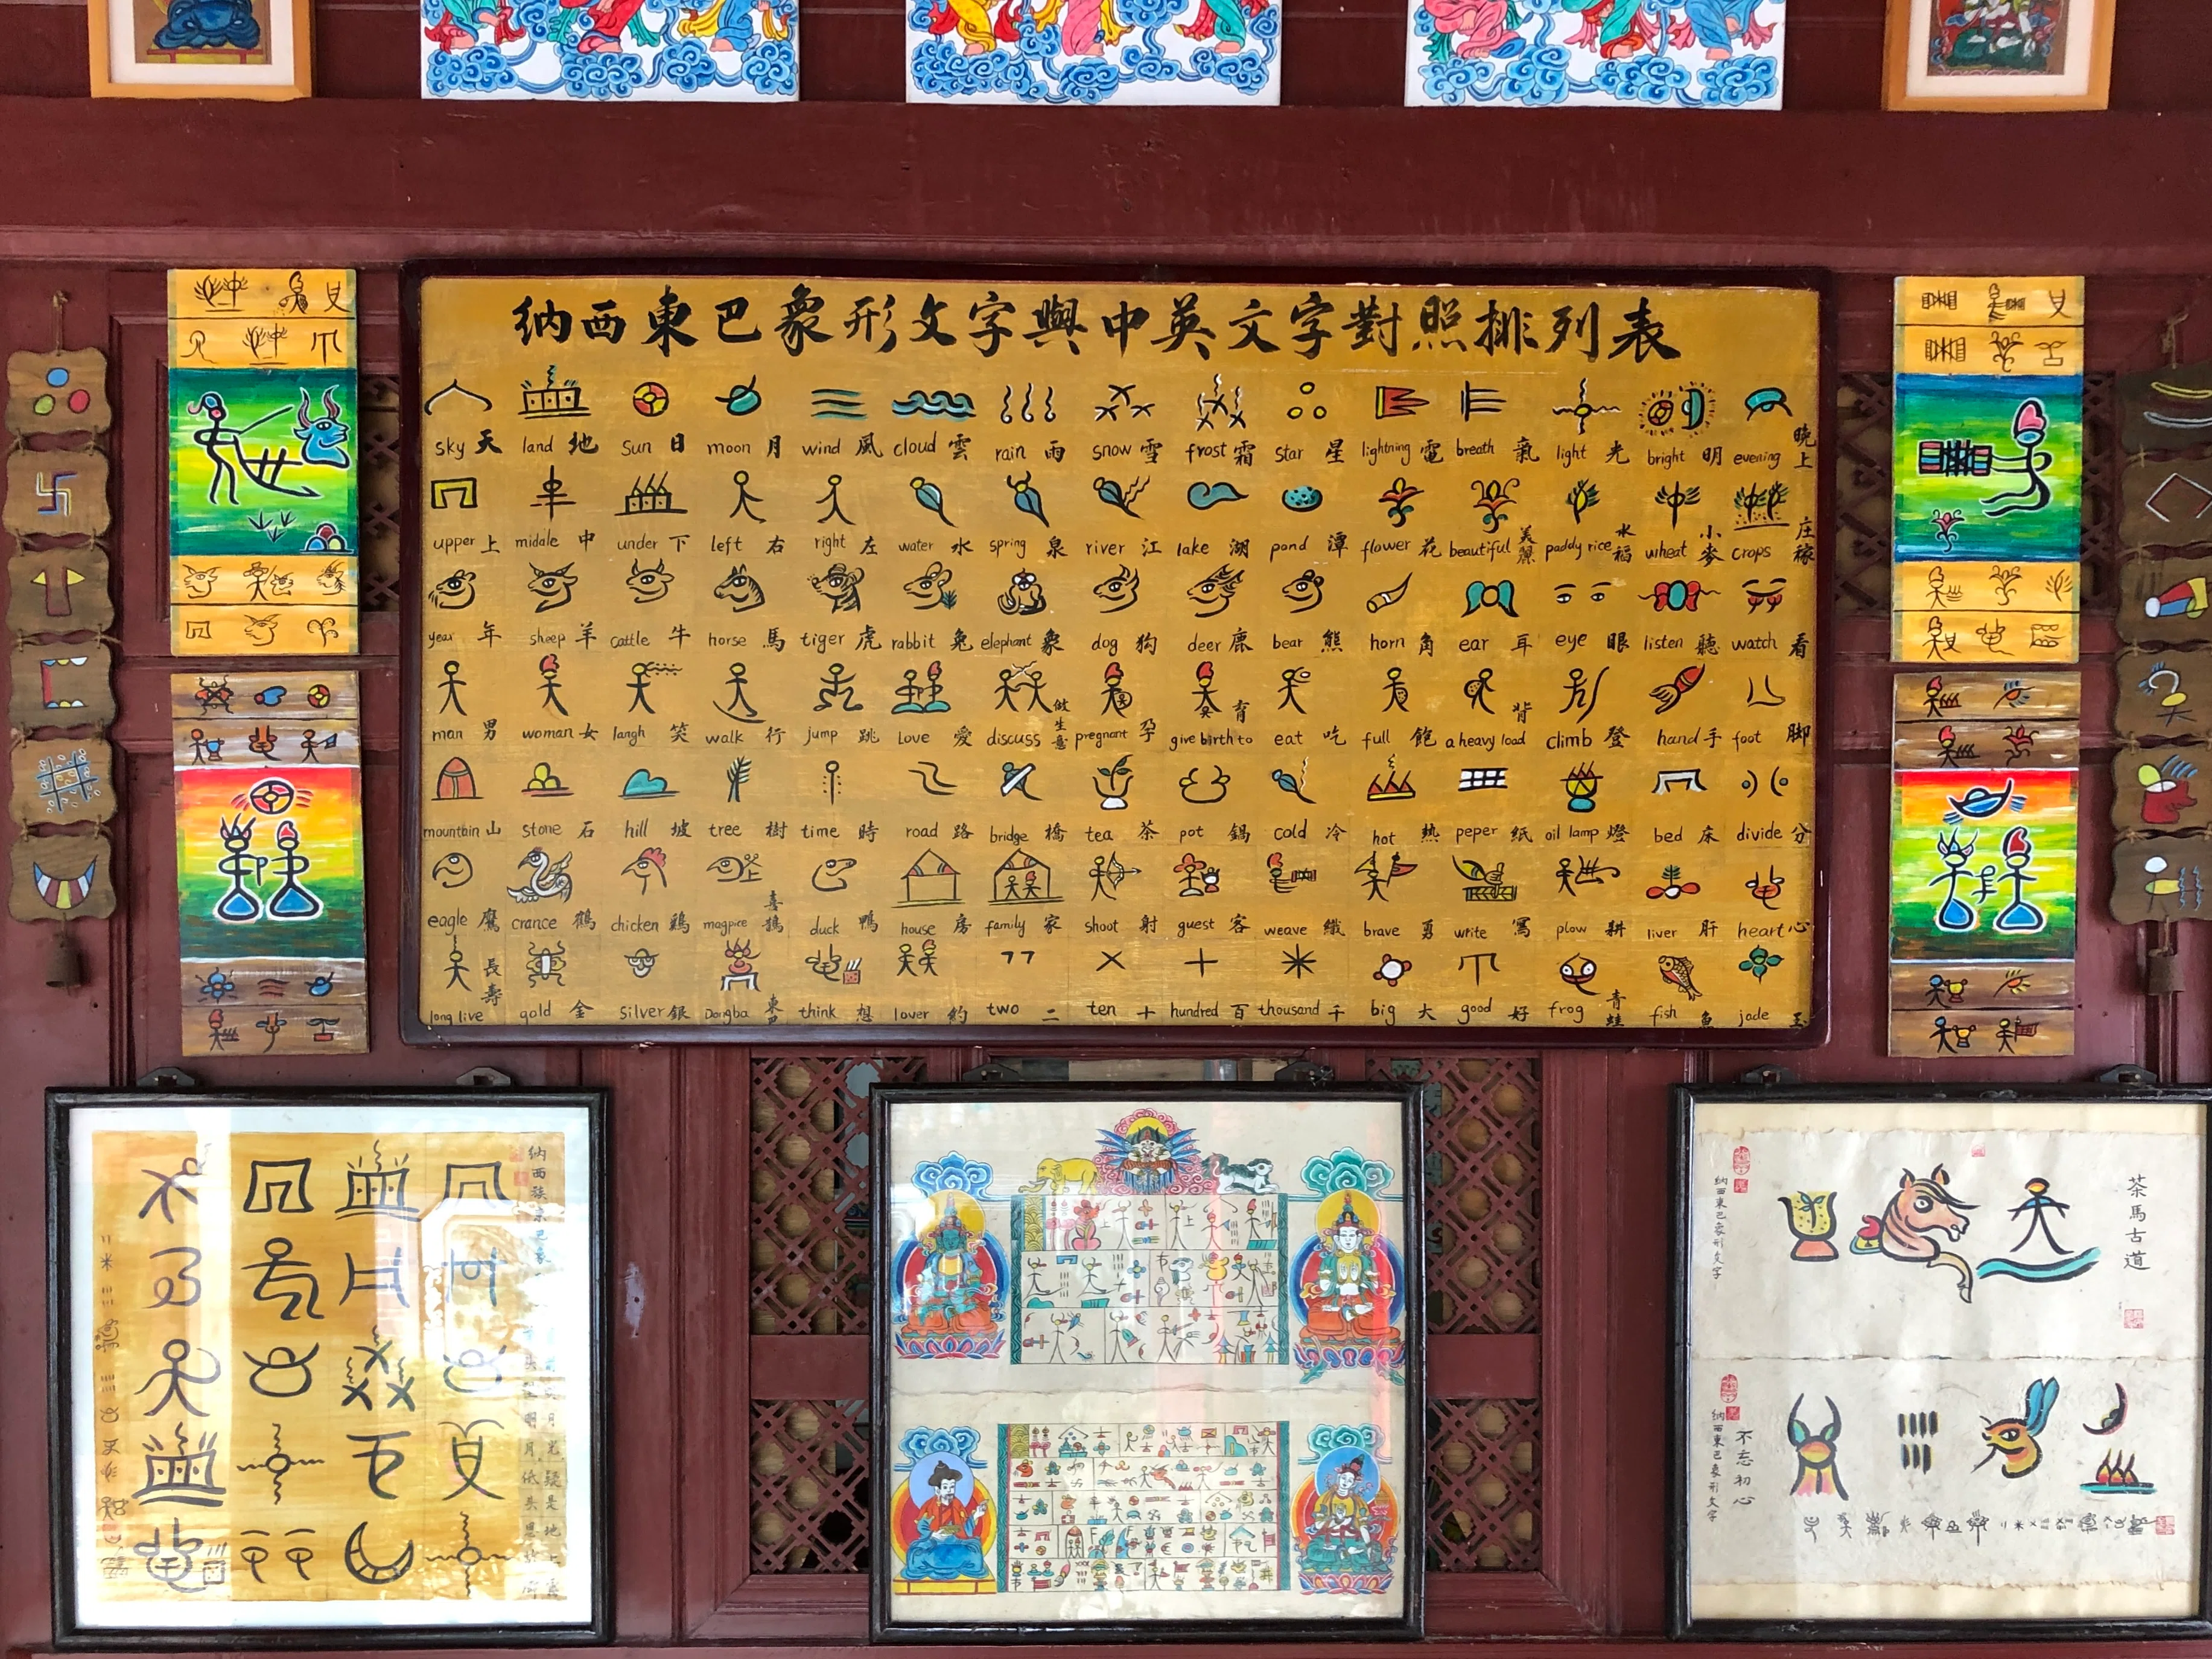 纳西東巴象形文字與中英文字對照排列表
sky 天 land 地 Sun 日 moon 月 wind 風 cloud 雲 rain 雨 snow 雪 frost 霜 star 星 lightning 電 breath 氣 light 光 bright 明 evening 晚上
upper 上 midale 中 under 下 left 右 right 左 water 水 spring 泉 river 江 lake 湖 pond 潭 flower 花 beautiful 美麗 paddy rice 水稻 wheat 小麥 crops 庄稼
year 年 sheep 羊 cattle 牛 horse 馬 tiger 虎 rabbit 兔 elephant 象 dog 狗 deer 鹿 bear 熊 horn 角 ear 耳 eye 眼 listen 聽 watch 看
man 男 woman 女 langh 笑 walk 行 jump 跳 Love 愛 discuss 做生意 pregnant 孕 give birth to 育 eat 吃 full 飽 a heavy load 背 climb 登 hand 手 foot 脚
mountain 山 stone 石 hill 坡 tree 樹 time 時 road 路 bridge 橋 tea 茶 pot 鍋 cold 冷 hot 熱 peper 纸 oil lamp 燈 bed 床 divide 分
eagle 鷹 crance 鶴 chicken 鷄 magpice 喜鵲 duck 鴨 house 房 family 家 shoot 射 guest 客 weave 織 brave 勇 write 寫 plow 耕 liver 肝 heart 心
long live 長壽 gold 金 silver 銀 Dongba 東巴 think 想 lover 約 two 二 ten 十 hundred 百 thousand 千 big 大 good 好 frog 青蛙 fish 魚 jade 玉
纳西族東巴象
茶馬古道
纳西東巴象形文字
不忘初心
纳西東巴象形文字